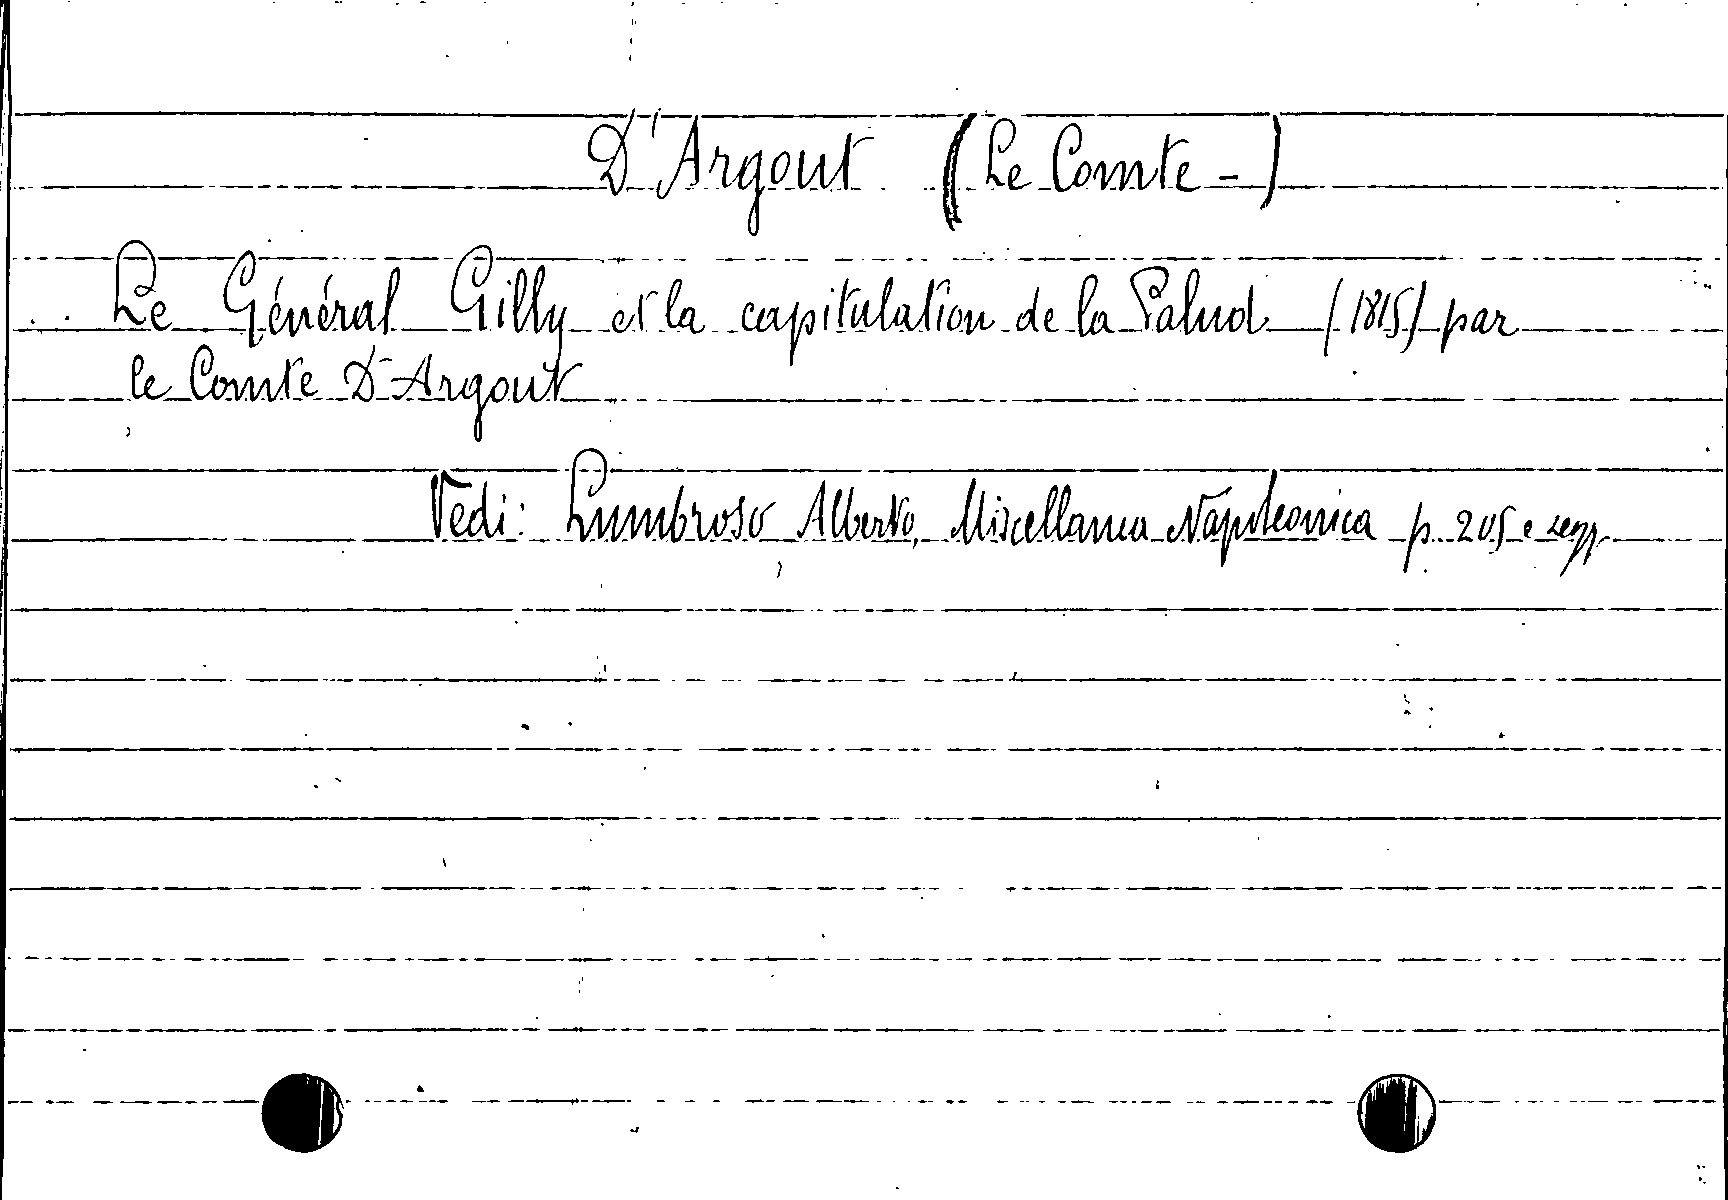 D'Argout (Le Comte -)
Le Général Gilly et la capitulation de la Palud (1815) par
le Comte D'Argout
Vedi: Lumbroso Alberto, Miscellanea Napoleonica p. 205 e segg.